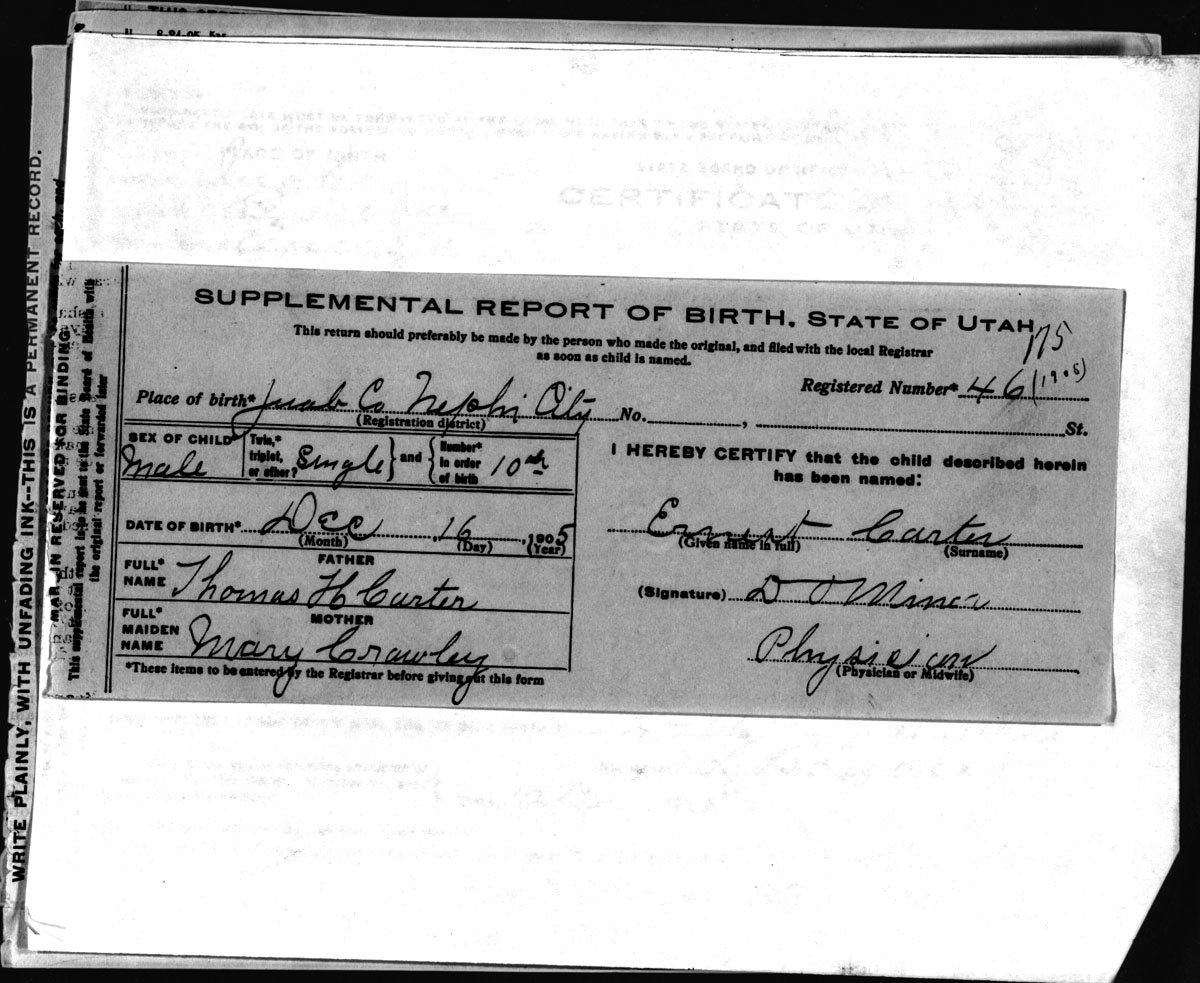 8-24-05
WRITE PLAINLY, WITH UNFADING INK--THIS IS A PERMANENT RECORD.
MARGIN RESERVED FOR BINDING
This supplemental report is to be sent to the State Board of Health with
the original report or forwarded later
CERTIFICATE
SUPPLEMENTAL REPORT OF BIRTH. STATE OF UTAH
175
This return should preferably be made by the person who made the original, and filed with the local Registrar
as soon as child is named.
Registered Number* 46 (1905)
Place of birth* Juab Co Nephi City No. , St.
(Registration district)
SEX OF CHILD Male
Twin,* triplet, or other? Single } and { Number* in order of birth 10th
I HEREBY CERTIFY that the child described herein
has been named:
DATE OF BIRTH* Dec 16, 1905
(Month) (Day) (Year)
Ernest Carter
(Given name in full) (Surname)
FATHER
FULL* NAME Thomas H Carter
(Signature) D O Miner
MOTHER
FULL* MAIDEN NAME Mary Crawley
Physician
(Physician or Midwife)
*These items to be entered by the Registrar before giving out this form